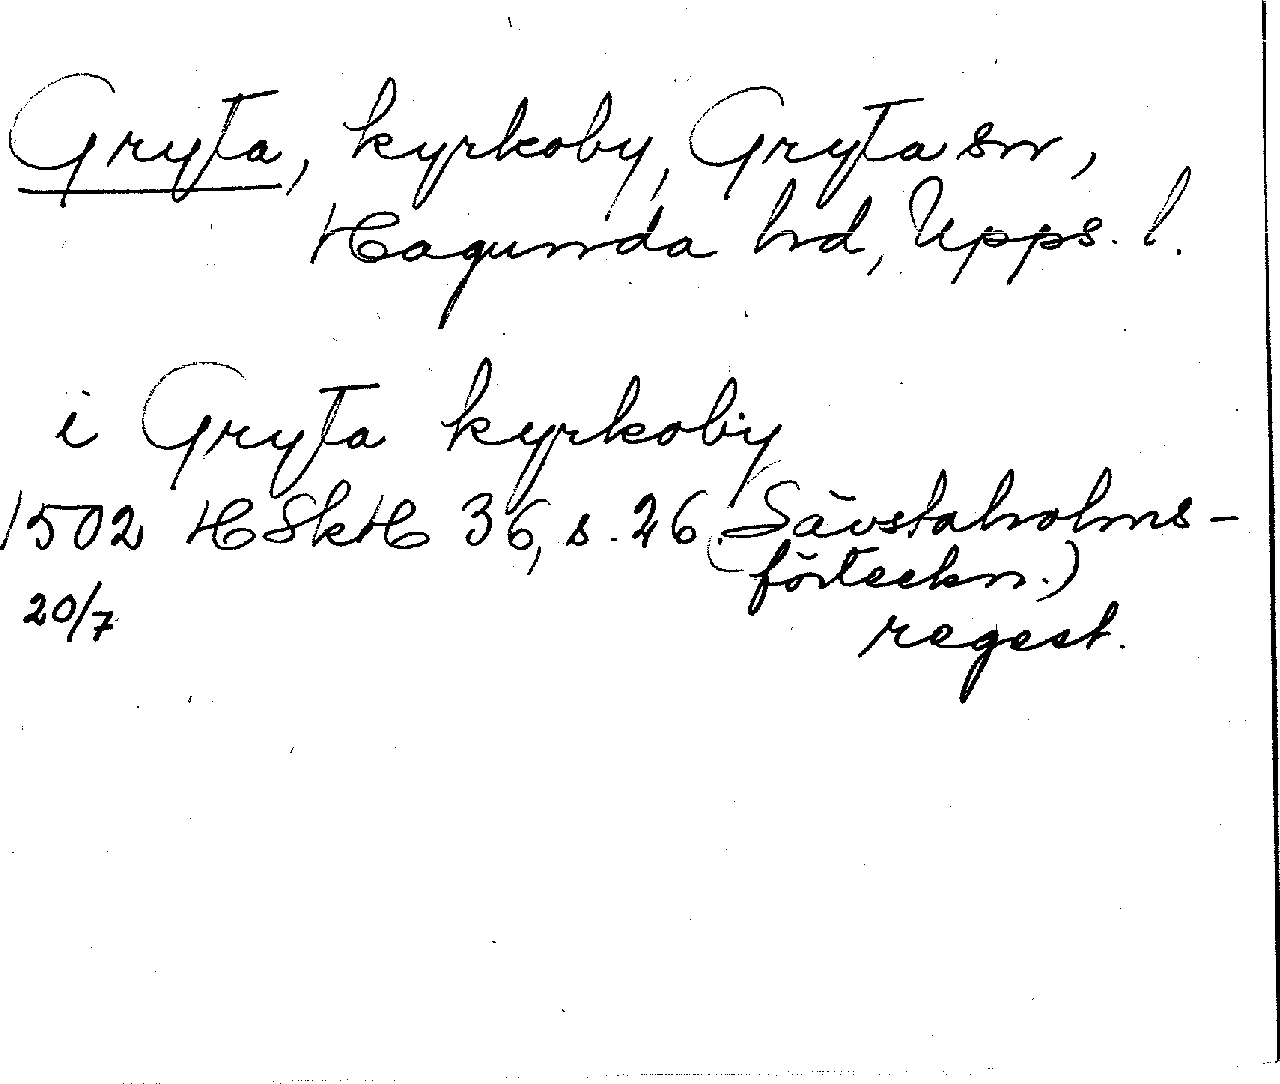 Gryta, kyrkoby, Gryta sn,
Hagunda hd, Upps. l.
i Gryta kyrkoby
1502 HSkH 36, s. 26 (Sävstaholms-
förteckn.)
20/7
regest.